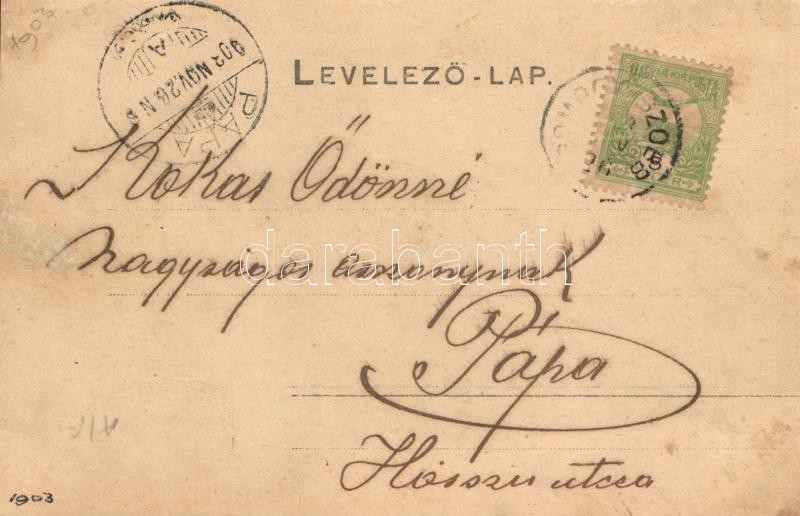 1903
LEVELEZŐ-LAP.
PÁPA
903 NOV. 26 N
SZOMBA
MAGYAR KIR. POSTA
Kokas Ödönné
nagyságos asszonynak
Pápa
Hosszu utcca
darabanth
1903